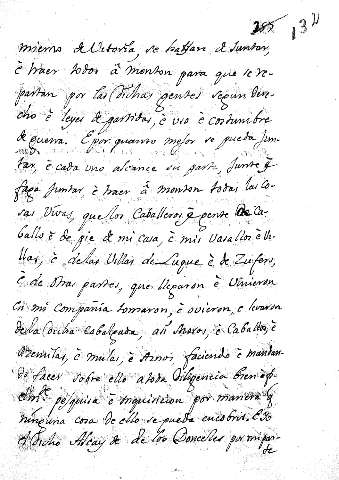 132
miento de Vitoria, se hallan de Juntar,
è traer todos â monton para que se re-
partan por las dichas gentes segun dere-
cho è leyes de partidas, è uso è costumbre
de guerra. E por quanto mejor se pueda jun-
tar, è cada uno alcance su parte, Junte è
faga Juntar è traer â monton todas las co-
sas Vivas, que los Caballeros è gente de Ca-
ballo è de pie de mi casa, è mis Vasallos è
è de las Villas de Luque è de Zuferos,
è de otras partes, que llegaron è vinieron
en mi Compañia tomaron, è ovieron, e levaron
de la dicha cabalgada, asi Moros, è Caballos, è
Azemilas, è mulas, è Asnos faciendo è mandan-
do facer sobre ello a toda diligencia bien è
pesquisa è inquisicion por manera q
ninguna cosa de ello se pueda encobrir. E Yo
el dicho Alcayde de los Donceles por mi par-
te